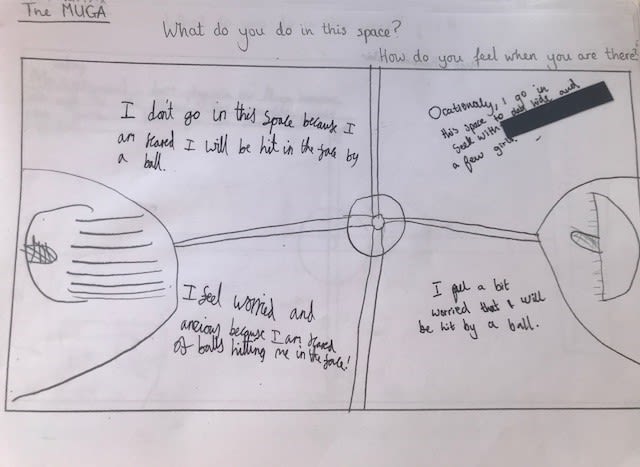 The MUGA
What do you do in this space?
How do you feel when you are there?
I don't go in this space because I
am scared I will be hit in the face by
a ball.
Ocationaly, I go in
this space to play hide and
seek with
a few girls.
I feel worried and
anxious because I am scared
of balls hitting me in the face!
I feel a bit
worried that I will
be hit by a ball.